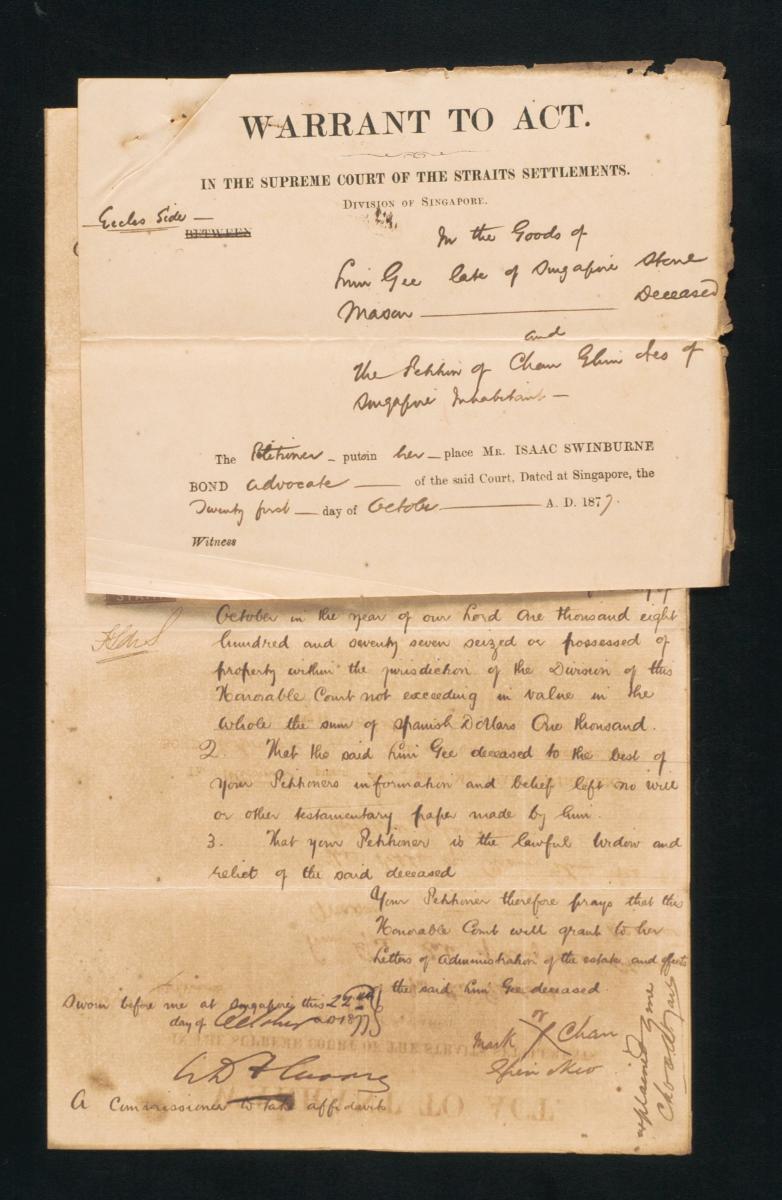 WARRANT TO ACT.
IN THE SUPREME COURT OF THE STRAITS SETTLEMENTS.
DIVISION OF SINGAPORE.
Eccles Side —
BETWEEN
In the Goods of
Gee late of Singapore Stone
Mason — Deceased
and
The Petition of Chan of
Singapore Inhabitant —
The Petitioner — puts in her — place MR. ISAAC SWINBURNE
BOND advocate — of the said Court, Dated at Singapore, the
Twenty first — day of October — A. D. 1877.
Witness
October in the year of our Lord One thousand eight
hundred and seventy seven seized or possessed of
property within the jurisdiction of the Division of this
Honorable Court not exceeding in value in the
whole the sum of Spanish Dollars One thousand.
2. That the said Gee deceased to the best of
your Petitioners information and belief left no will
or other testamentary paper made by him.
3. That your Petitioner is the lawful Widow and
relict of the said deceased
Your Petitioner therefore prays that this
Honorable Court will grant to her
Letters of Administration of the estate and effects
of the said Gee deceased.
Sworn before me at Singapore this 22nd
day of October AD 1877
Mark of X Chan
Neo
A Commissioner to take affidavits
explained by me